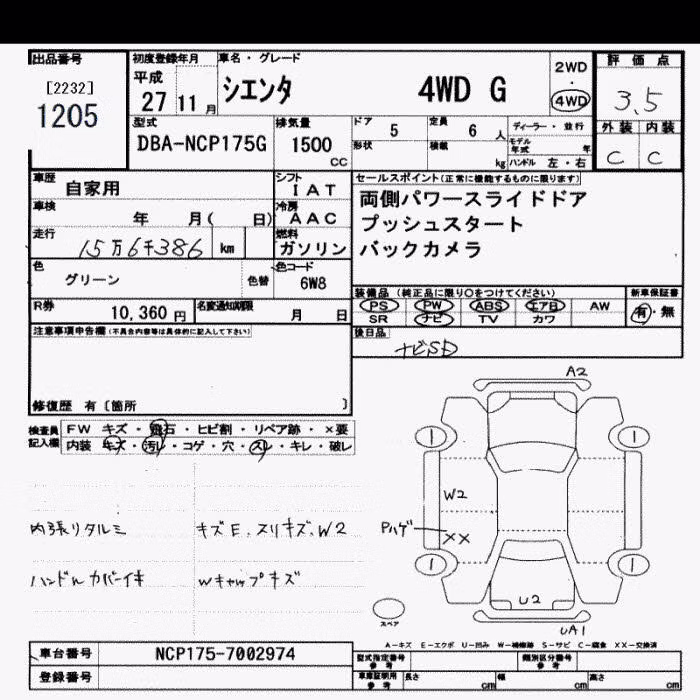 出品番号
[2232]
1205
初度登録年月
平成
27 11月
車名・グレード
シエンタ 4WD G
2WD
・
4WD
評価点
3.5
外装 内装
C C
型式
DBA-NCP175G
排気量
1500
CC
ドア 5
定員 6 人
ディーラー・並行
形状
積載 kg
モデル年式 年
ハンドル 左・右
車歴
自家用
シフト
IAT
セールスポイント(正常に機能するものに限ります)
両側パワースライドドア
プッシュスタート
バックカメラ
車検
年 月( 日)
冷房
AAC
走行
15万6千386 km
燃料
ガソリン
色
グリーン
色替
色コード
6W8
装備品(純正品に限り○をつけてください)
新車保証書
PS PW ABS エアB AW
有・無
SR ナビ TV カワ
R券
10,360 円
名変通知期限
月 日
後日品
ナビSD
注意事項申告欄(不具合内容等は具体的に記入して下さい)
修復歴 有〔箇所 〕
検査員記入欄
FW キズ・飛石・ヒビ割・リペア跡・×要
内装 キズ・汚レ・コゲ・穴・スレ・キレ・破レ
内張リタルミ
キズE、スリキズ、W2
ハンドルカバーイキ
Wキャップキズ
A2
1 1
W2
Pハゲ
XX
1 1
U2
UA1
スペア
A-キズ E-エクボ U-凹み W-補修跡 S-サビ C-腐食 XX-交換済
車台番号
NCP175-7002974
登録番号
型式指定番号
参考
類別区分番号
参考
車庫証明用
参考
長さ cm
幅 cm
高さ cm